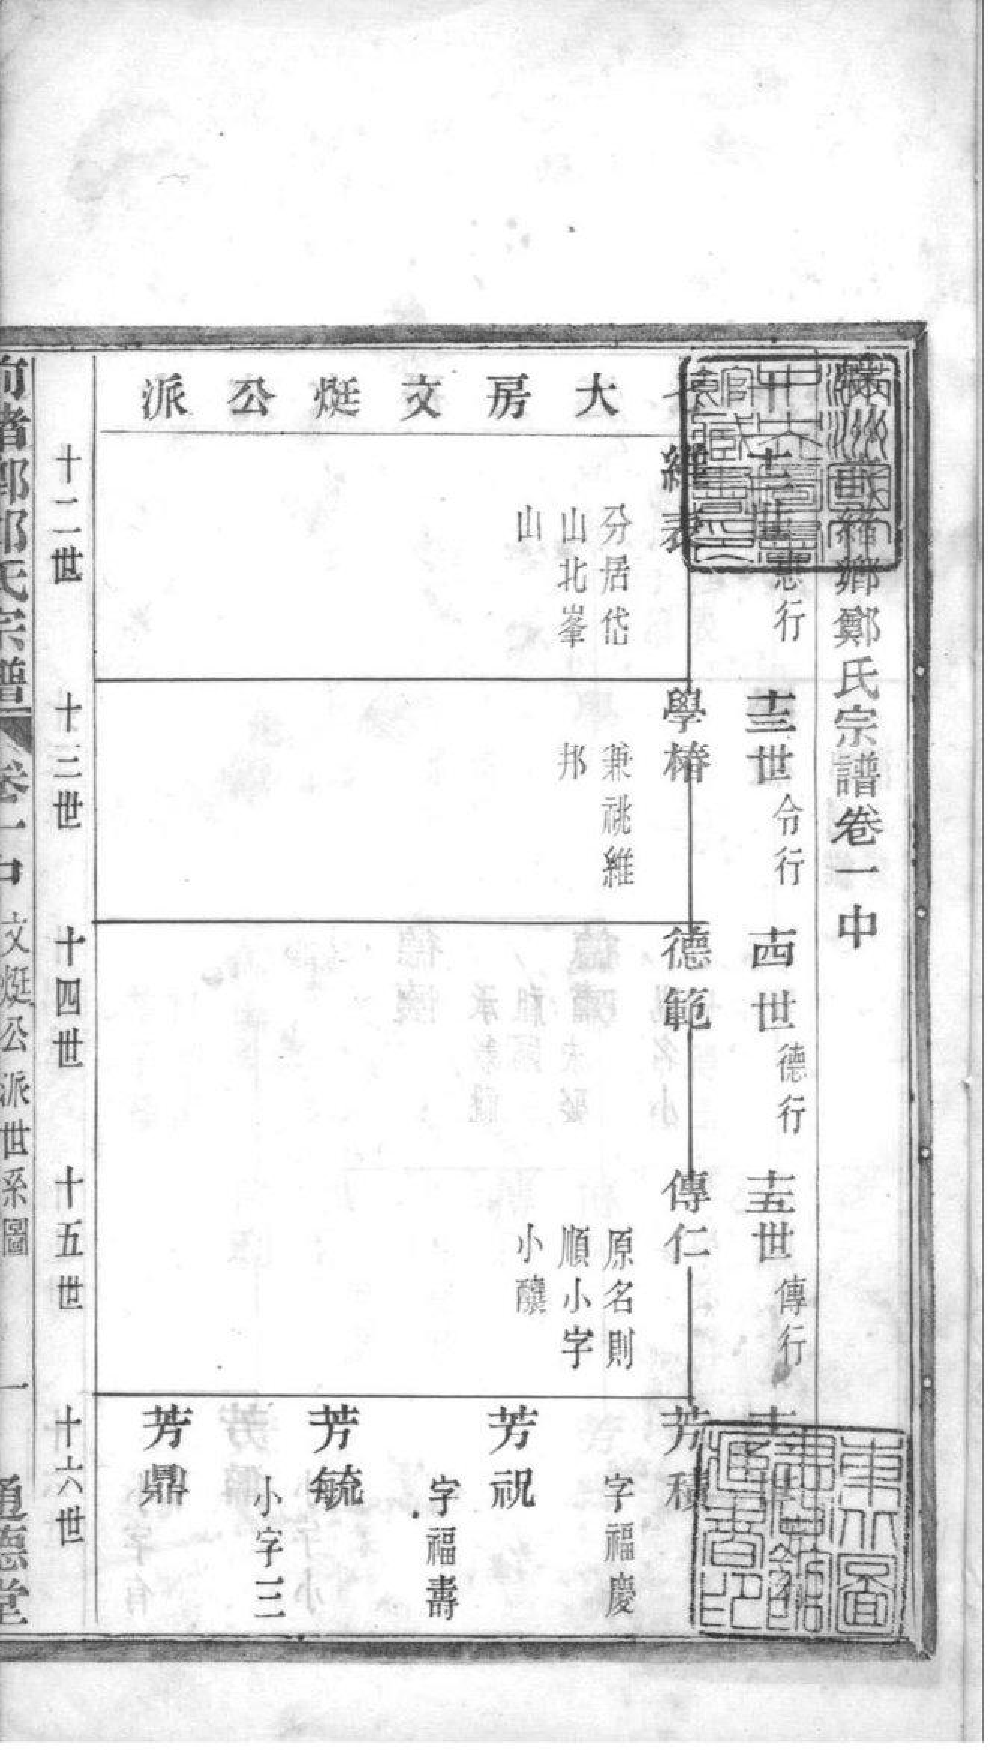 緒鄉鄭氏宗譜卷一中
世 行
大房文烶公派
維表
分居岱
山北峯
山
十三世 令行
學椿
兼祧維
邦
十四世 德行
德範
十五世 傳行
傳仁
原名則
順小字
小釀
芳積
字福慶
芳祝
字福壽
芳毓
小字三
芳鼎
十二世
十三世
十四世
十五世
十六世
渚鄭氏宗譜 卷一中 文烶公派世系圖 一 通德堂